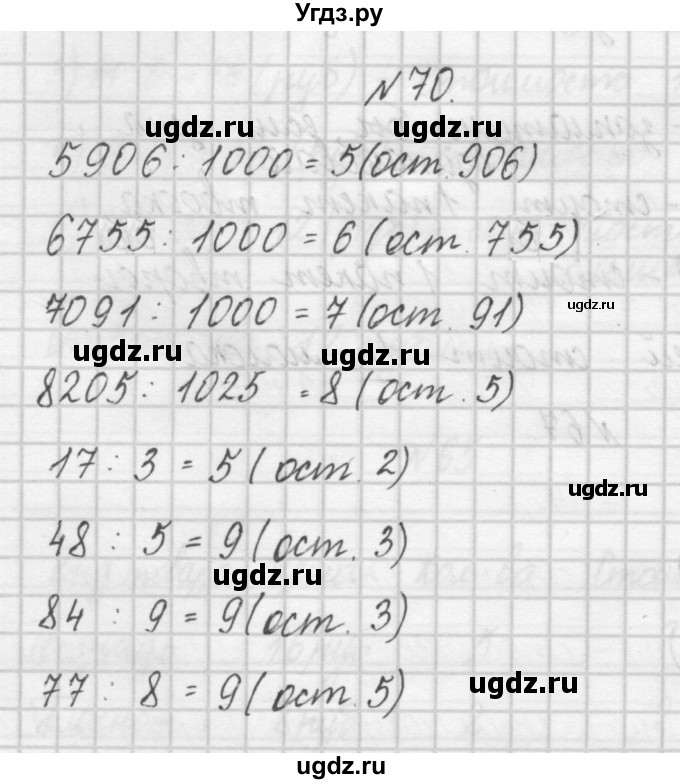 Угдз.ру
№70.
ugdz.ru ugdz.ru
5906 : 1000 = 5 (ост. 906)
6755 : 1000 = 6 (ост. 755)
ugdz.ru
7091 : 1000 = 7 (ост. 91)
ugdz.ru ugdz.ru
8205 : 1025 = 8 (ост. 5)
№67.
17 : 3 = 5 (ост. 2)
ugdz.ru
48 : 5 = 9 (ост. 3)
ugdz.ru
84 : 9 = 9 (ост. 3)
77 : 8 = 9 (ост. 5)
ugdz.ru
ugdz.ru